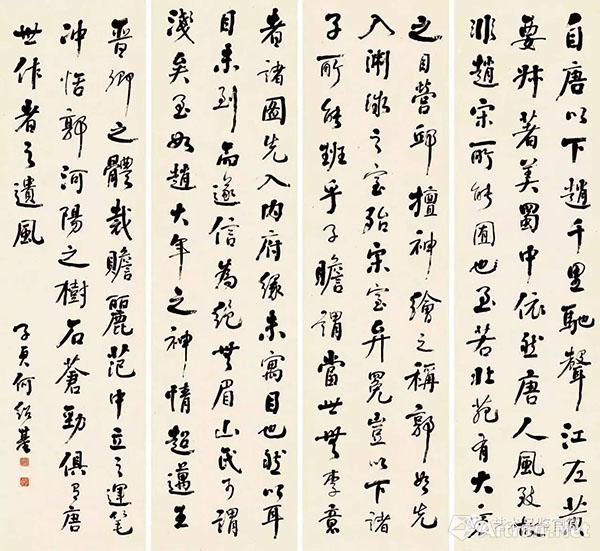 自唐以下趙千里馳聲江左黃
要叔著美蜀中依然唐人風致故
非趙宋所能囿也至若北苑有大家
之目營邱擅神繪之稱郭如先
入淵微之室殆宋室弁冕豈以下諸
子所能班乎子瞻謂當世無李意
者諸圖先入內府緣未寓目也然以耳
目未到而遂信為絕無眉山氏可謂
淺矣至如趙大年之神情超邁王
晉卿之體裁贍麗范中立之運筆
沖恬郭河陽之樹石蒼勁俱有唐
世作者之遺風
子貞何紹基